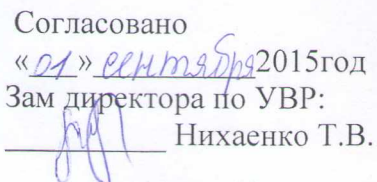 Согласовано
«01» сентября 2015год
Зам директора по УВР:
Нихаенко Т.В.